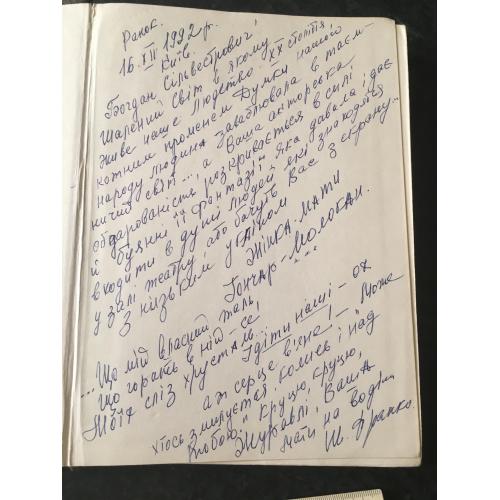 Ранок.
16. XII 1992 р.
Київ
Богдан Сільвестрович!
Шалений світ в якому
живе наше людство XX століття,
котним променем Думки нашого
народу людина заваблювала в таєм-
ничий світ..., а Ваша акторська
обдарованість розкривається в силі
й буянні її фантазії, яка давала і дає
входити в душі людей, які знаходяться
у залі театру, або бачуть Вас з екрану...
З низьким уклоном
Жінка. Мати
Гончар-Молокан.
...Що мід власний жаль,
Що горить в ній – се
Моїх сліз хрусталь...
І діти наші – ох
аж серце в'яне! – "Може
хтось змилується, колись і над
тобою" Крушо, крушо,
Журавлі, Ваша
мати на воді
Франко.